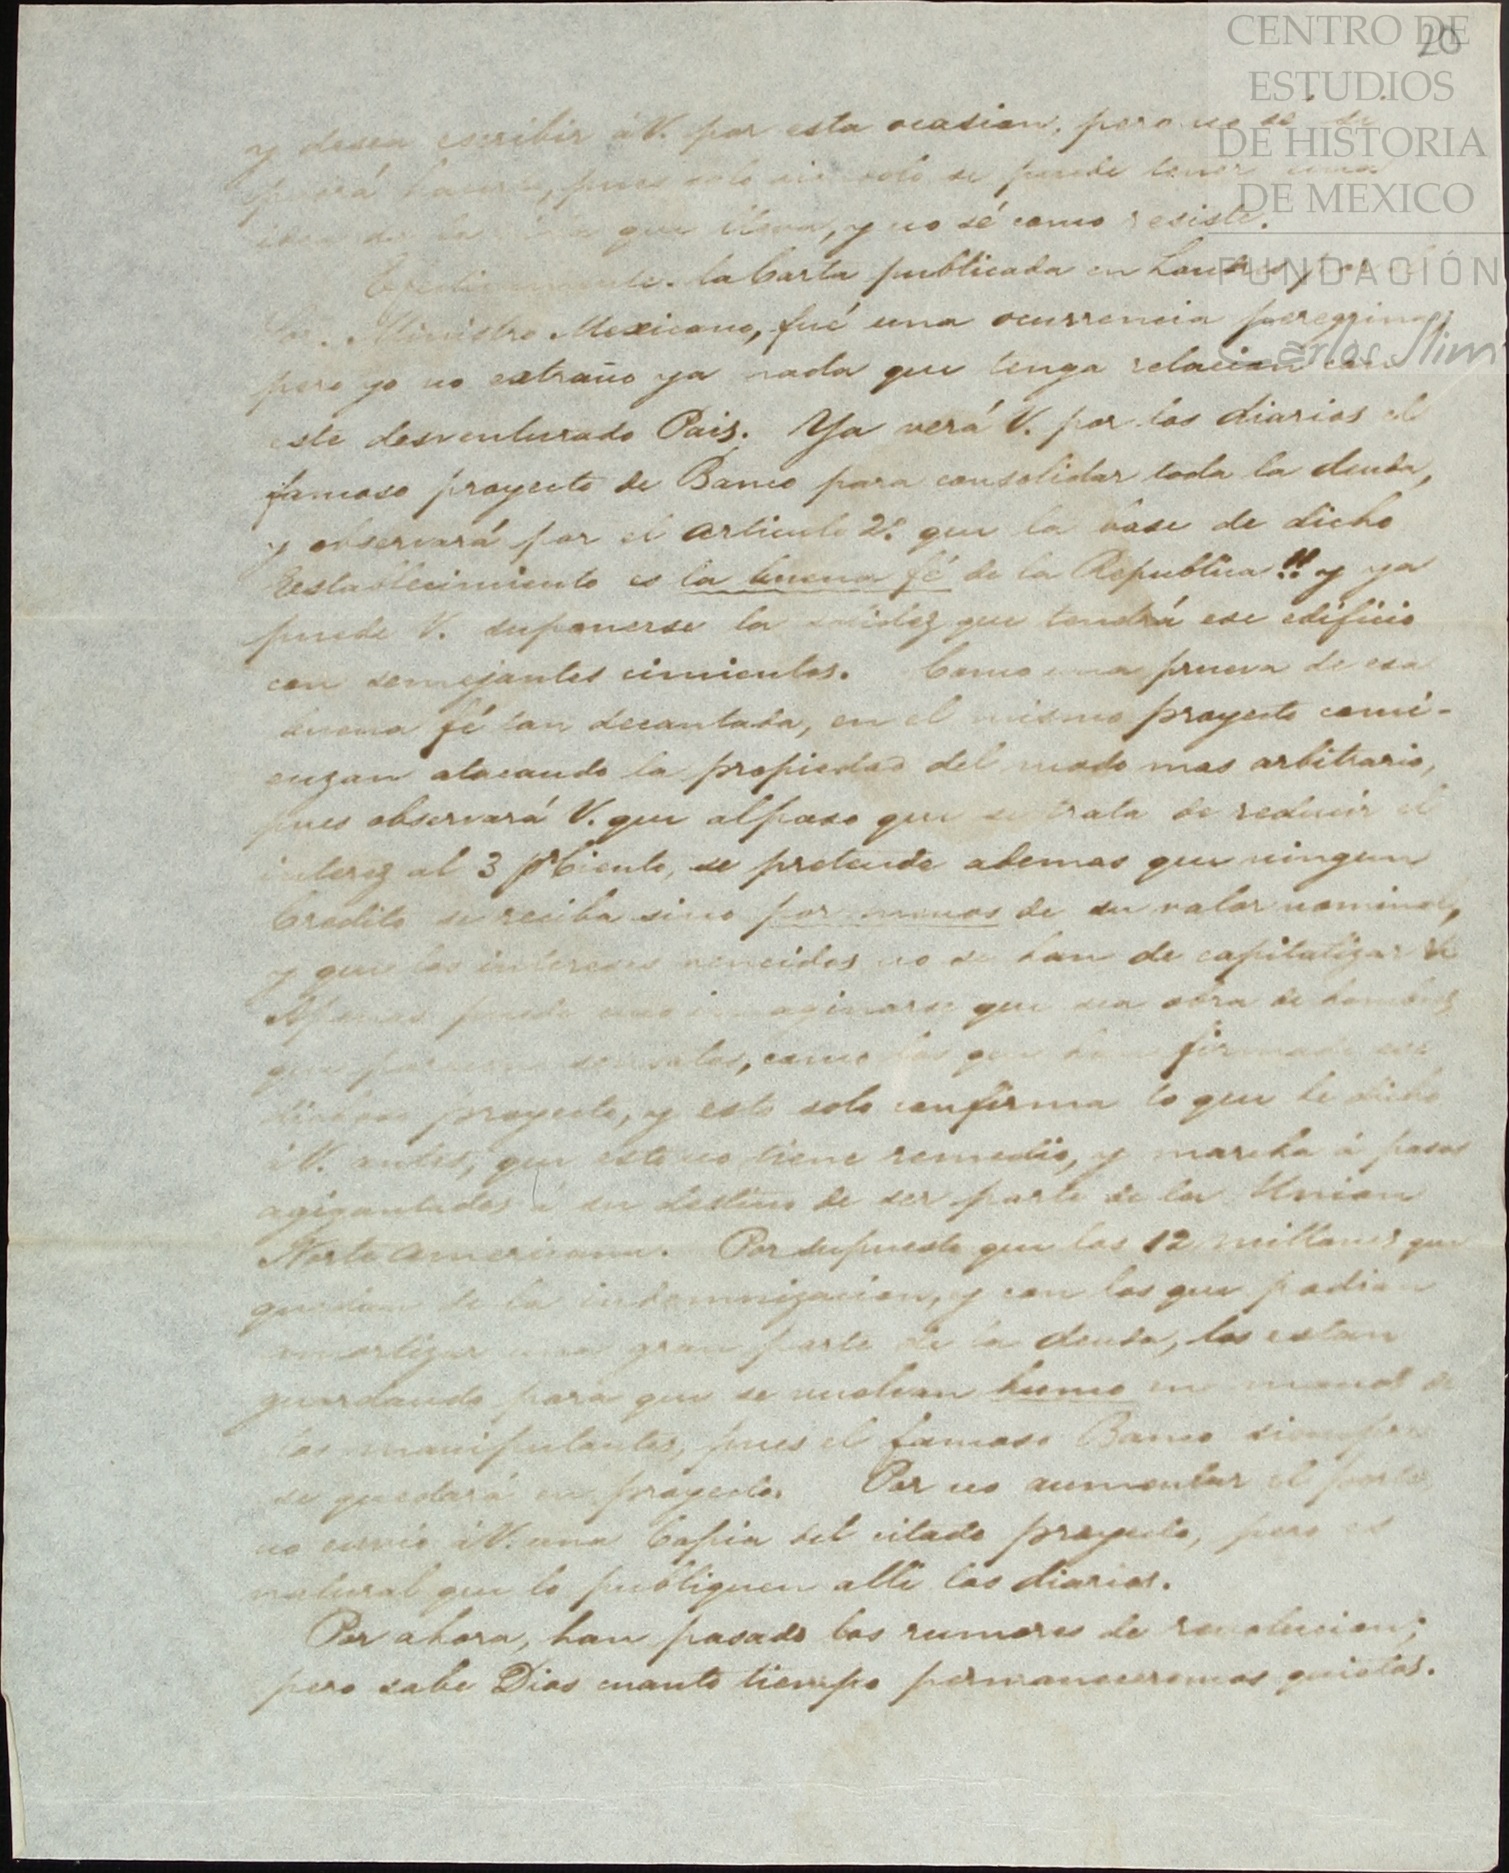 CENTRO DE
ESTUDIOS
DE HISTORIA
DE MEXICO
FUNDACIÓN
Carlos Slim
20
y desea escribir á V. por esta ocasion, pero no sé si
podrá hacerlo, pues solo viendolo se puede tener una
idea de la que lleva, y no sé como resiste.
Efectivamente la Carta publicada en Londres por el
Sor. Ministro Mexicano, fué una ocurrencia peregrina;
pero yo no extraño ya nada que tenga relacion con
este desventurado Pais. Ya verá V. por los diarios el
famoso proyecto de Banco para consolidar toda la deuda,
y observará por el articulo 2º que la base de dicho
Establecimiento es la buena fé de la Republica!! y ya
puede V. suponerse la solidez que tendrá ese edificio
con semejantes cimientos. Como una prueva de esa
buena fé tan decantada, en el mismo proyecto comi-
enzan atacando la propiedad del modo mas arbitrario,
pues observará V. que al paso que se trata de reducir el
interez al 3 pCiento, se pretende ademas que ningun
Credito se reciba sino por menos de su valor nominal,
y que los intereses vencidos no se han de capitalizar
Apenas puede uno imaginarse que sea obra de hombres
que parecen sensatos, como los que han firmado ese
dichoso proyecto, y esto solo confirma lo que he dicho
á V. antes, que esto no tiene remedio, y marcha á pasos
agigantados á su destino de ser parte de la Union
Norte Americana. Por supuesto que los 12 millones que
quedan de la indemnizacion, y con los que podian
amortizar una gran parte de la deuda, los estan
guardando para que se vuelvan humo en manos de
los manipulantes, pues el famoso Banco siempre
se quedará en proyecto. Por no aumentar el porte
no envio á V. una Copia del citado proyecto, pero es
natural que lo publiquen alli los diarios.
Por ahora, han pasado los rumores de revolucion;
pero sabe Dios cuanto tiempo permaneceremos quietos.